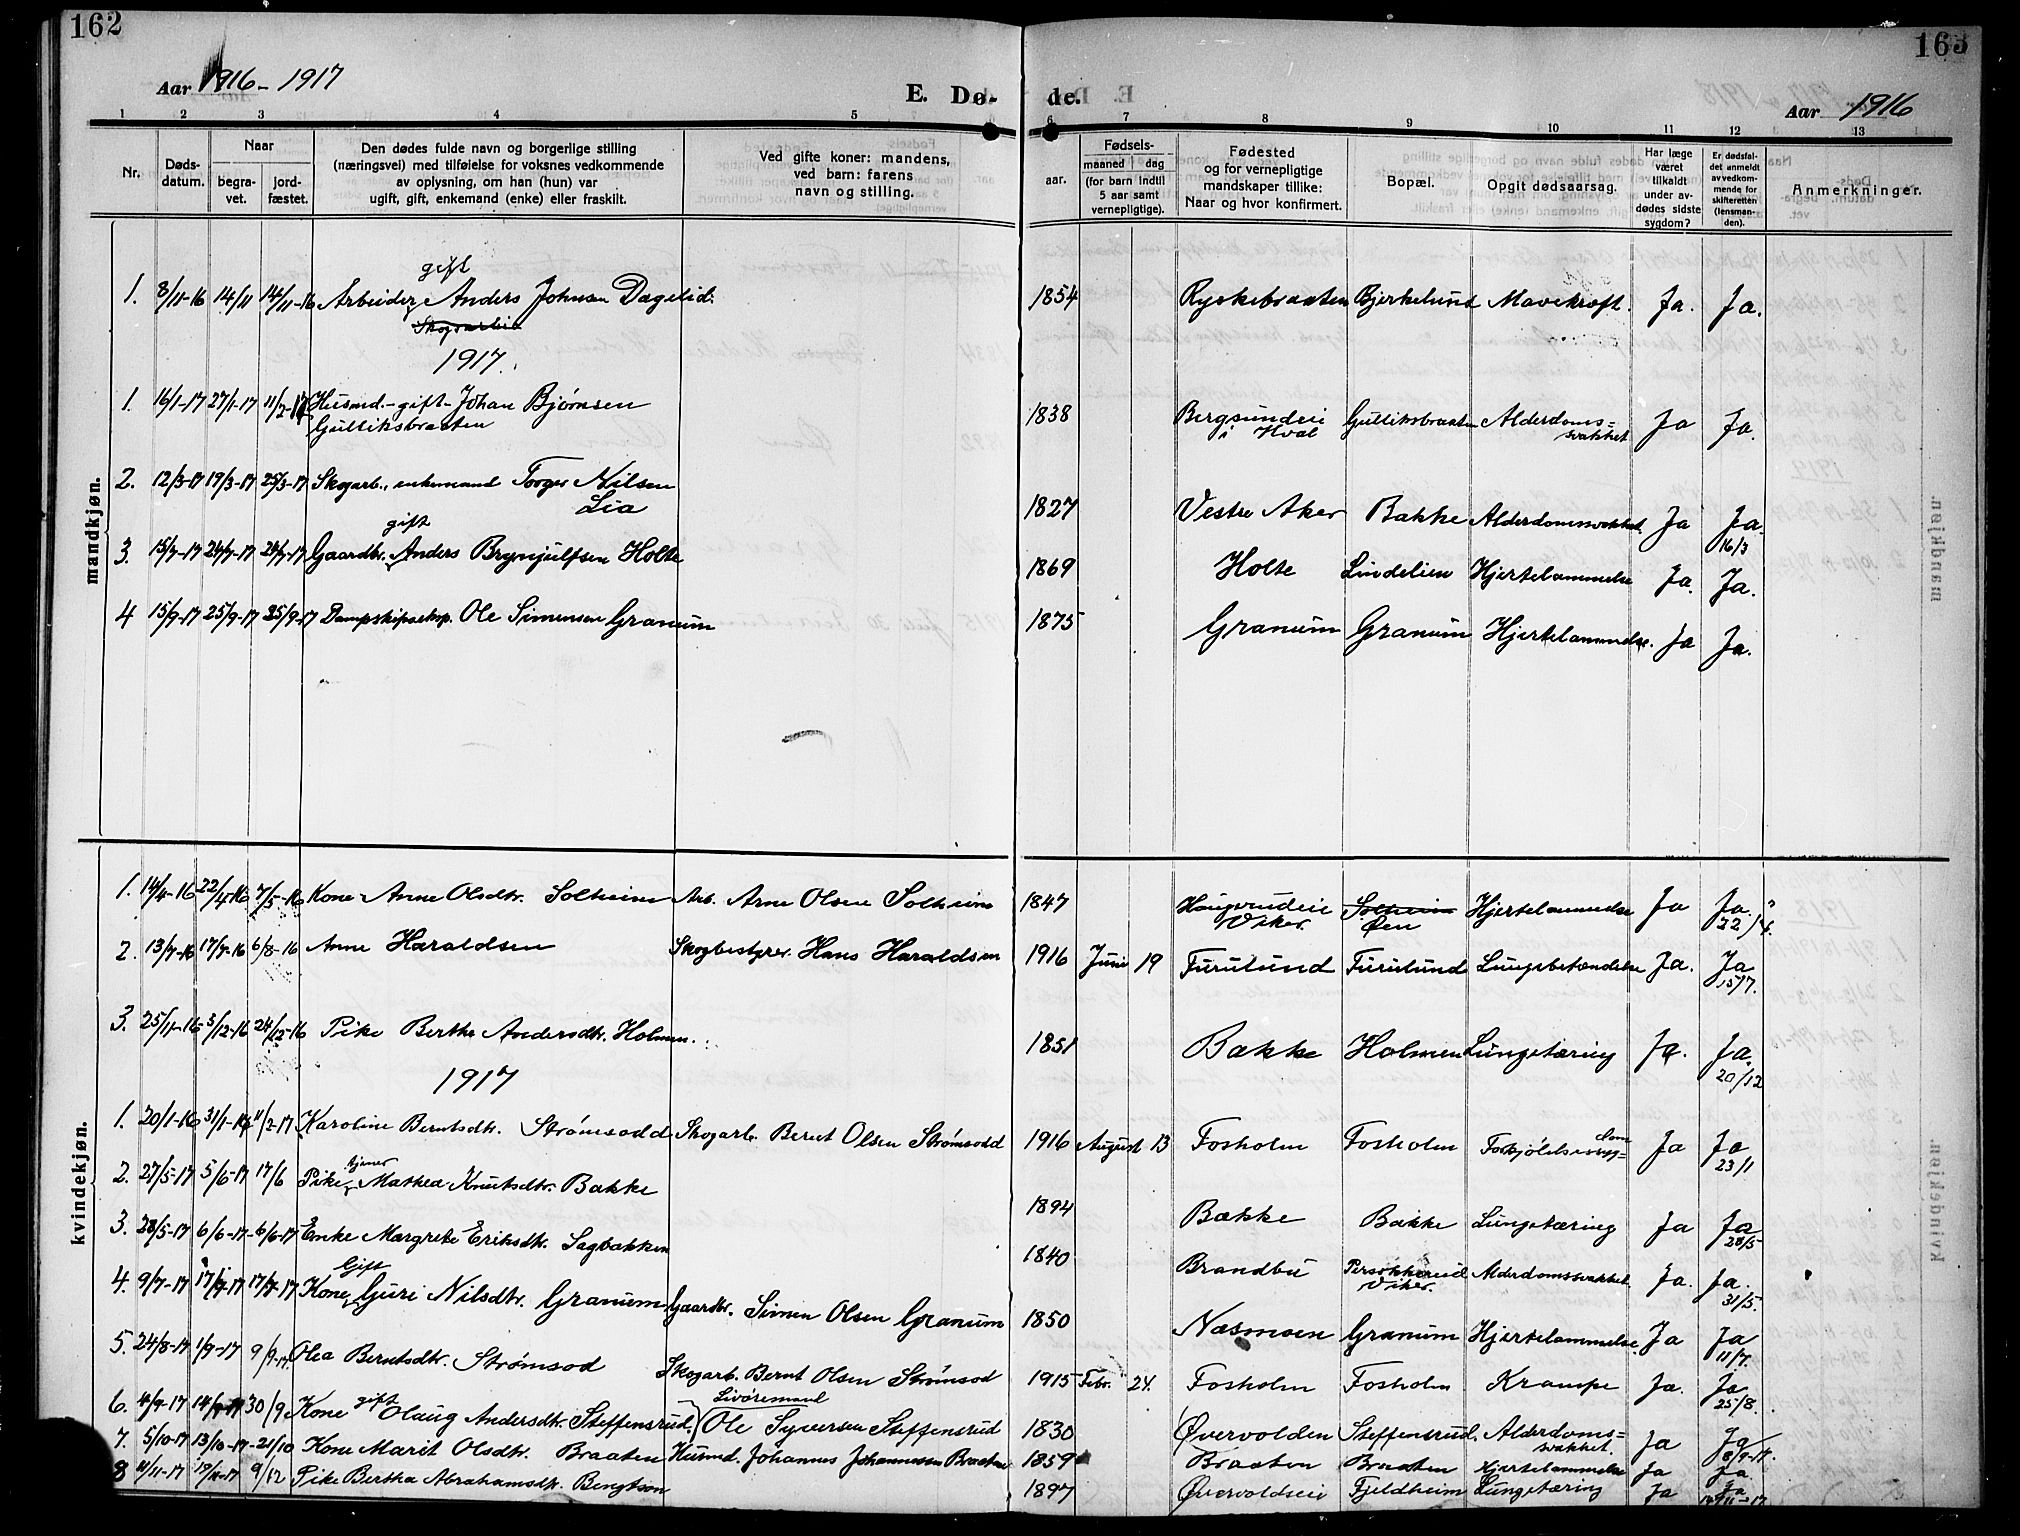 162
163
Aar 1916-1917
E. Dø-
de.
Aar 1916
1 2 3 4 5 6 7 8 9 10 11 12 13
Nr.
Døds-datum.
Naar
begra-vet.
jord-fæstet.
Den dødes fulde navn og borgerlige stilling
(næringsvei) med tilføielse for voksnes vedkommende
av oplysning, om han (hun) var
ugift, gift, enkemand (enke) eller fraskilt.
Ved gifte koner: mandens,
ved barn: farens
navn og stilling.
Fødsels-
aar.
maaned dag
(for barn indtil
5 aar samt
vernepligtige).
Fødested
og for vernepligtige
mandskaper tillike:
Naar og hvor konfirmert.
Bopæl.
Opgit dødsaarsag.
Har læge
været
tilkaldt
under av-
dødes sidste
sygdom?
Er dødsfal-
det anmeldt
av vedkom-
mende for
skifteretten
(lensman-
den).
Anmerkninger.
mandkjøn.
gift
1. 8/11-16 14/11 14/11-16 Arbeider Anders Johnsen Dagslid. 1854 Ryskebraaten Bjerkelund Mavekræft. Ja. Ja.
Skogsarbei
1917.
1. 16/1-17 27/1-17 11/2-17 Husmd.-gift-Johan Bjørnsen 1838 Bergsundeie Gulliksbraaten Alderdoms= Ja Ja.
Gulliksbraaten i Hval svakhet
2. 12/3-17 19/3-17 25/3-17 Skogarb., enkemand Torger Nilsen 1827 Vestre Aker Bakke Alderdomssvakhet. Ja Ja.
Lia 16/3
gift
3. 15/7-17 24/7-17 24/7-17 Gaardbr. Anders Brynjulfsen Holte 1869 Holte Lindelien Hjertelammelse Ja. Ja.
4 15/9-17 25/9-17 25/9-17 Dampskipseksp. Ole Simensen Granum 1875 Granum Granum Hjertelammelse. Ja Ja.
kvindekjøn.
1. 14/4-16 22/4-16 7/5-16 Kone Anne Olsdtr. Solheim Arb. Arne Olsen Solheim 1847 Haugerudeie Solheim Hjertelammelse Ja Ja.
Viker. Øen 22/4.
2. 13/7-16 17/7-16 6/8-16 Anne Haraldsen Skogbestyrer. Hans Haraldsen 1916 Juni 19 Furulund Furulund Lungebetændelse Ja. Ja
15/7.
3. 25/11-16 3/12-16 24/12-16 Pike Berthe Andersdtr. Holmen. 1851 Bakke Holmen Lungetæring Ja. Ja.
20/12
1917
1. 20/1-16 31/1-17 11/2-17 Karoline Berntsdtr. Strømsodd Skogarb. Bernt Olsen Strømsodd 1916 August 13 Fosholm Fosholm Forkjølelse Ja Ja
23/1
tjener
2. 27/5-17 5/6-17 17/6 Pike Mathea Knutsdtr. Bakke 1894 Bakke Bakke Lungetæring Ja Ja
28/5
3. 28/5-17 6/6-17 6/6-17 Enke Margrete Eriksdtr. Sagbakken 1840 Brandbu Alderdomssvakhet Ja. Ja.
Viker. 31/5.
Gift
4. 9/7-17 17/7-17 17/7-17 Kone Guri Nilsdtr. Granum Gaardbr. Simen Olsen Granum 1850 Næsmoen Granum Hjertelammelse. Ja Ja
11/7.
5. 24/8-17 1/9-17 9/9-17 Olea Berntsdtr. Strømsod Skogarb. Bernt Olsen Strømsod 1915 Febr. 24. Fosholm Fosholm Krampe Ja. Ja
25/8.
gift Livøresmand
6. 4/9-17 14/9-17 30/9 Kone Olaug Andersdtr. Steffensrud. Ole Syversen Steffensrud 1830 Øvervolden Steffensrud. Alderdoms= Ja Ja
svakhet. 8/9-17.
7. 5/10-17 13/10-17 21/10 Kone Marit Olsdtr. Braaten Husmd. Johannes Johannessen Braaten 1859 Braaten Braaten Hjertelammelse Ja Ja
8 11/11-17 19/11-17 9/12 Pike Bertha Abrahamsdtr. Bengtson 1897 Øvervoldseie Fjeldheim Lungetæring Ja Ja
14/11-17